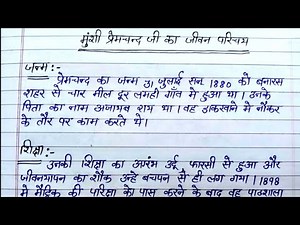 मुंशी प्रेमचन्द जी का जीवन परिचय
जन्म :-
प्रेमचन्द का जन्म 31 जुलाई सन् 1880 को बनारस
शहर से चार मील दूर लमही गाँव में हुआ था। उनके
पिता का नाम अजायब राय था। वह डाकखाने में नौकर
के तौर पर काम करते थे।
शिक्षा :-
उनकी शिक्षा का आरंभ उर्दू फारसी से हुआ और
जीवनयापन का शौक उन्हे बचपन से ही लग गया। 1898
मे मैट्रिक की परिक्षा को पास करने के बाद वह पाठशाला